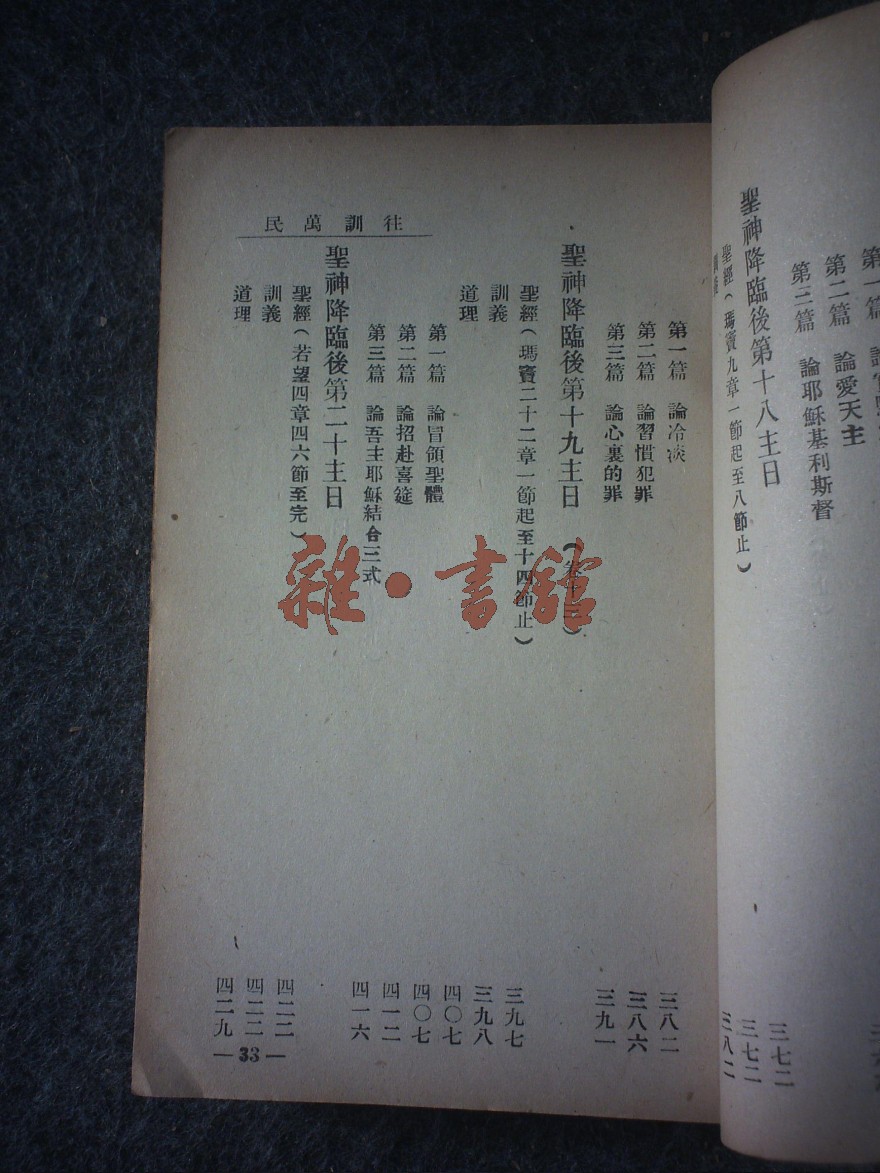 第一篇
第二篇 論愛天主
第三篇 論耶穌基利斯督
聖神降臨後第十八主日
聖經(瑪竇九章一節起至八節止) 三七二
三七二
三八二
往訓萬民
第一篇 論冷淡 三八二
第二篇 論習慣犯罪 三八六
第三篇 論心裏的罪 三九一
聖神降臨後第十九主日
聖經(瑪竇二十二章一節起至十四節止) 三九七
訓義 三九八
道理 四〇七
第一篇 論冒領聖體 四〇七
第二篇 論招赴喜筵 四一二
第三篇 論吾主耶穌結合三式 四一六
聖神降臨後第二十主日
聖經(若望四章四六節至完) 四二二
訓義 四二二
道理 四二九
— 33 —
雜·書館